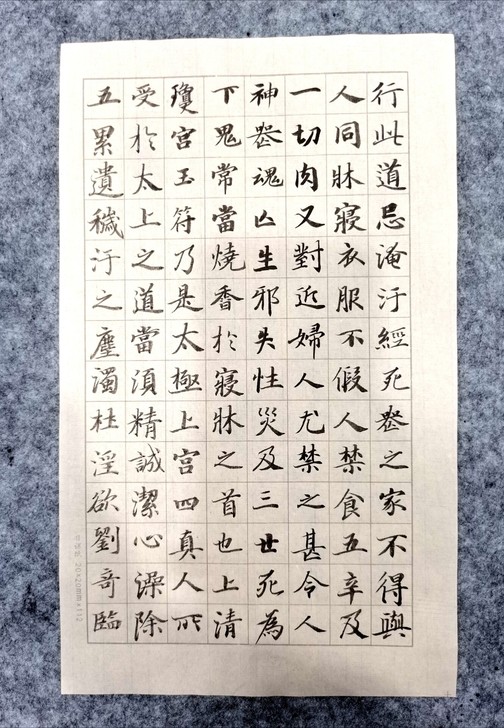 行此道忌淹汙經死喪之家不得與
人同牀寢衣服不假人禁食五辛及
一切肉又對近婦人尤禁之甚令人
神喪魂亡生邪失性災及三世死為
下鬼常當燒香於寢牀之首也上清
瓊宮玉符乃是太極上宮四真人所
受於太上之道當須精誠潔心澡除
五累遺穢汙之塵濁杜淫欲劉竒臨
20×20mm×112